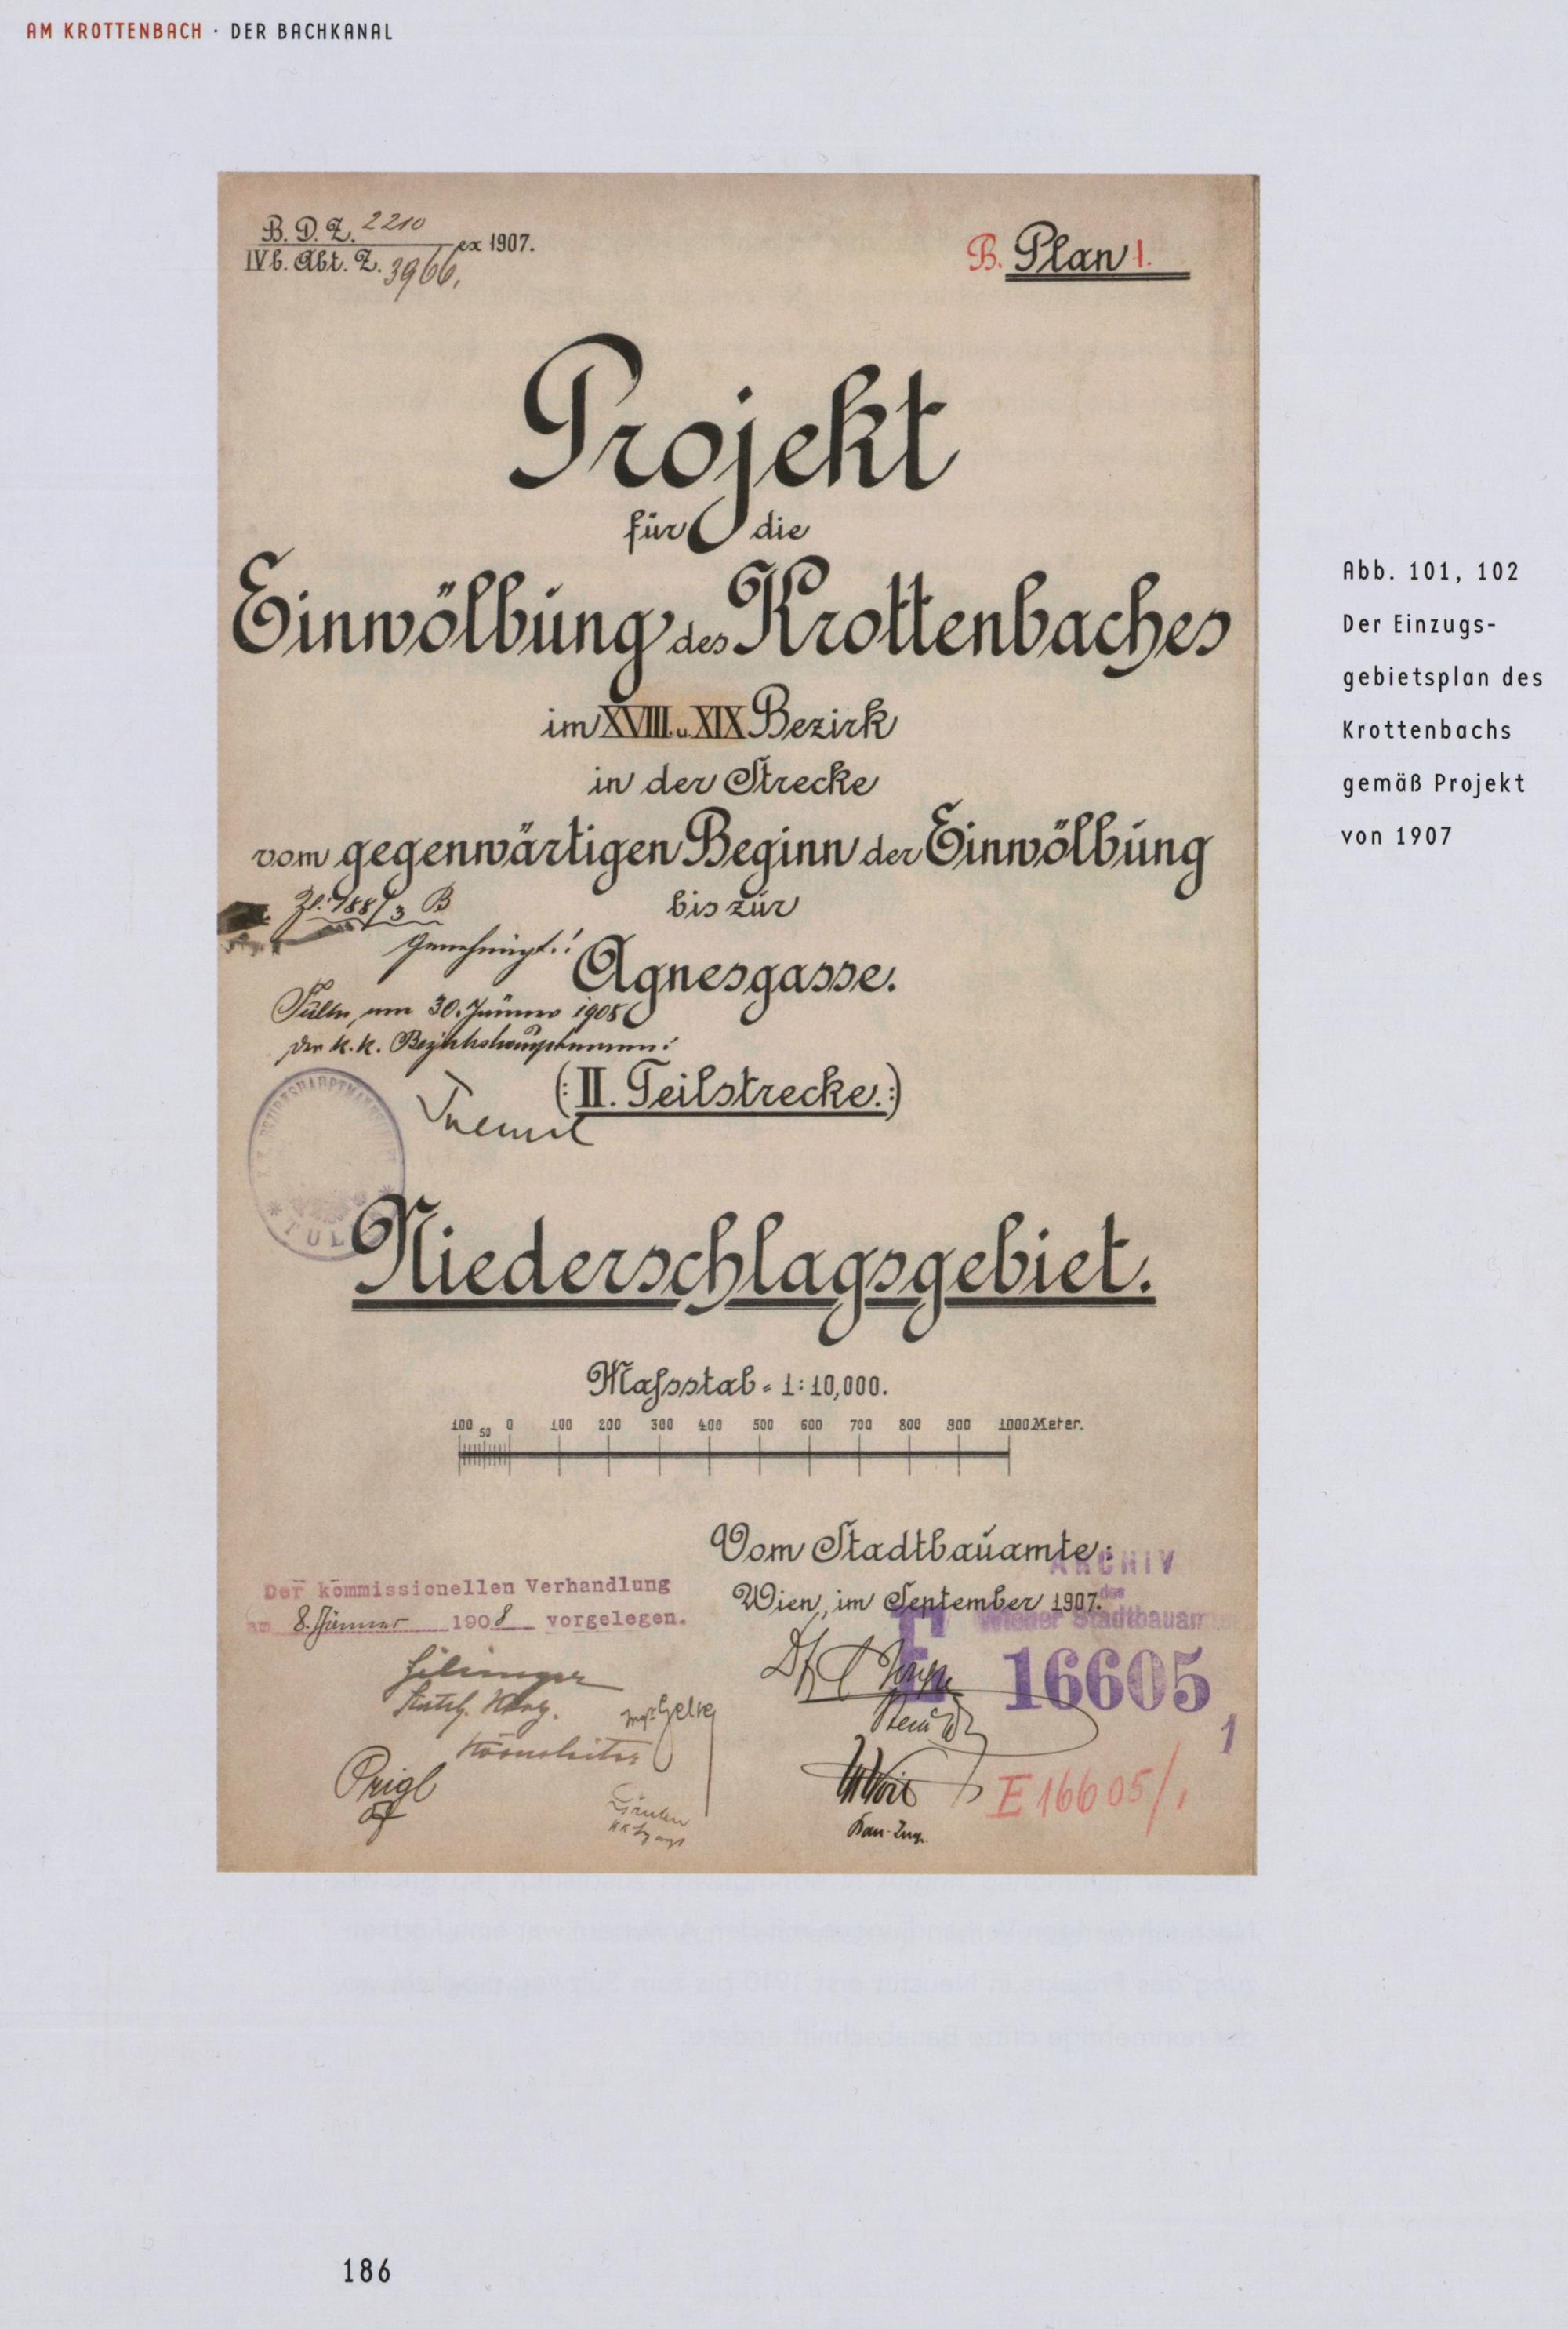 AM KROTTENBACH · DER BACHKANAL
B. D. Z. 2210
IVb. Abt. Z. 3966. ex 1907.
B. Plan 1.
Projekt
für die
Einwölbung des Krottenbaches
im XVIII. u. XIX Bezirk
in der Strecke
vom gegenwärtigen Beginn der Einwölbung
bis zur
Agnesgasse.
Genehmigt!
Tulln, am 30. Jänner 1908
Der k. k. Bezirkshauptmann:
(: II. Teilstrecke. :)
Niederschlagsgebiet.
Maſsstab = 1:10,000.
100 50 0 100 200 300 400 500 600 700 800 900 1000 Meter.
Vom Stadtbauamte:
Wien, im September 1907.
ARCHIV
des
Wiener Stadtbauamtes
E 16605
1
Der kommissionellen Verhandlung
am 8. Jänner 1908 vorgelegen.
Prigl
Bau-Ing.
E 16605/1
Abb. 101, 102
Der Einzugs-
gebietsplan des
Krottenbachs
gemäß Projekt
von 1907
186